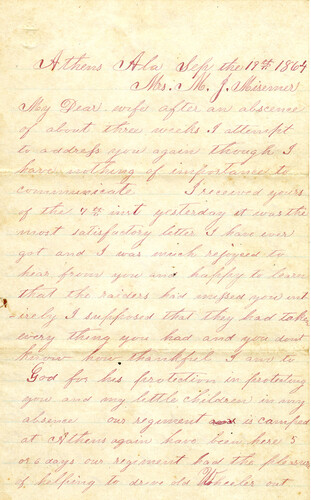 Athens Ala Sep the 19th 1864
Mrs. M. J.
My Dear wife after an abscence
of about three weeks I attempt
to address you again though I
have nothing of importance to
communicate I received yours
of the 4th inst yesterday it was the
most satisfactory letter I have ever
got and I was much rejoysed to
hear from you and happy to learn
that the raiders had missed you ent
irely I supposed that they had taken
every thing you had and you dont
know how thankful I am to
God for his protection in protecting
you and my little children in my
absence our regement is camped
at Athens again have been here 5
or 6 days our regiment had the pleasure
of helping to drive old Wheeler out